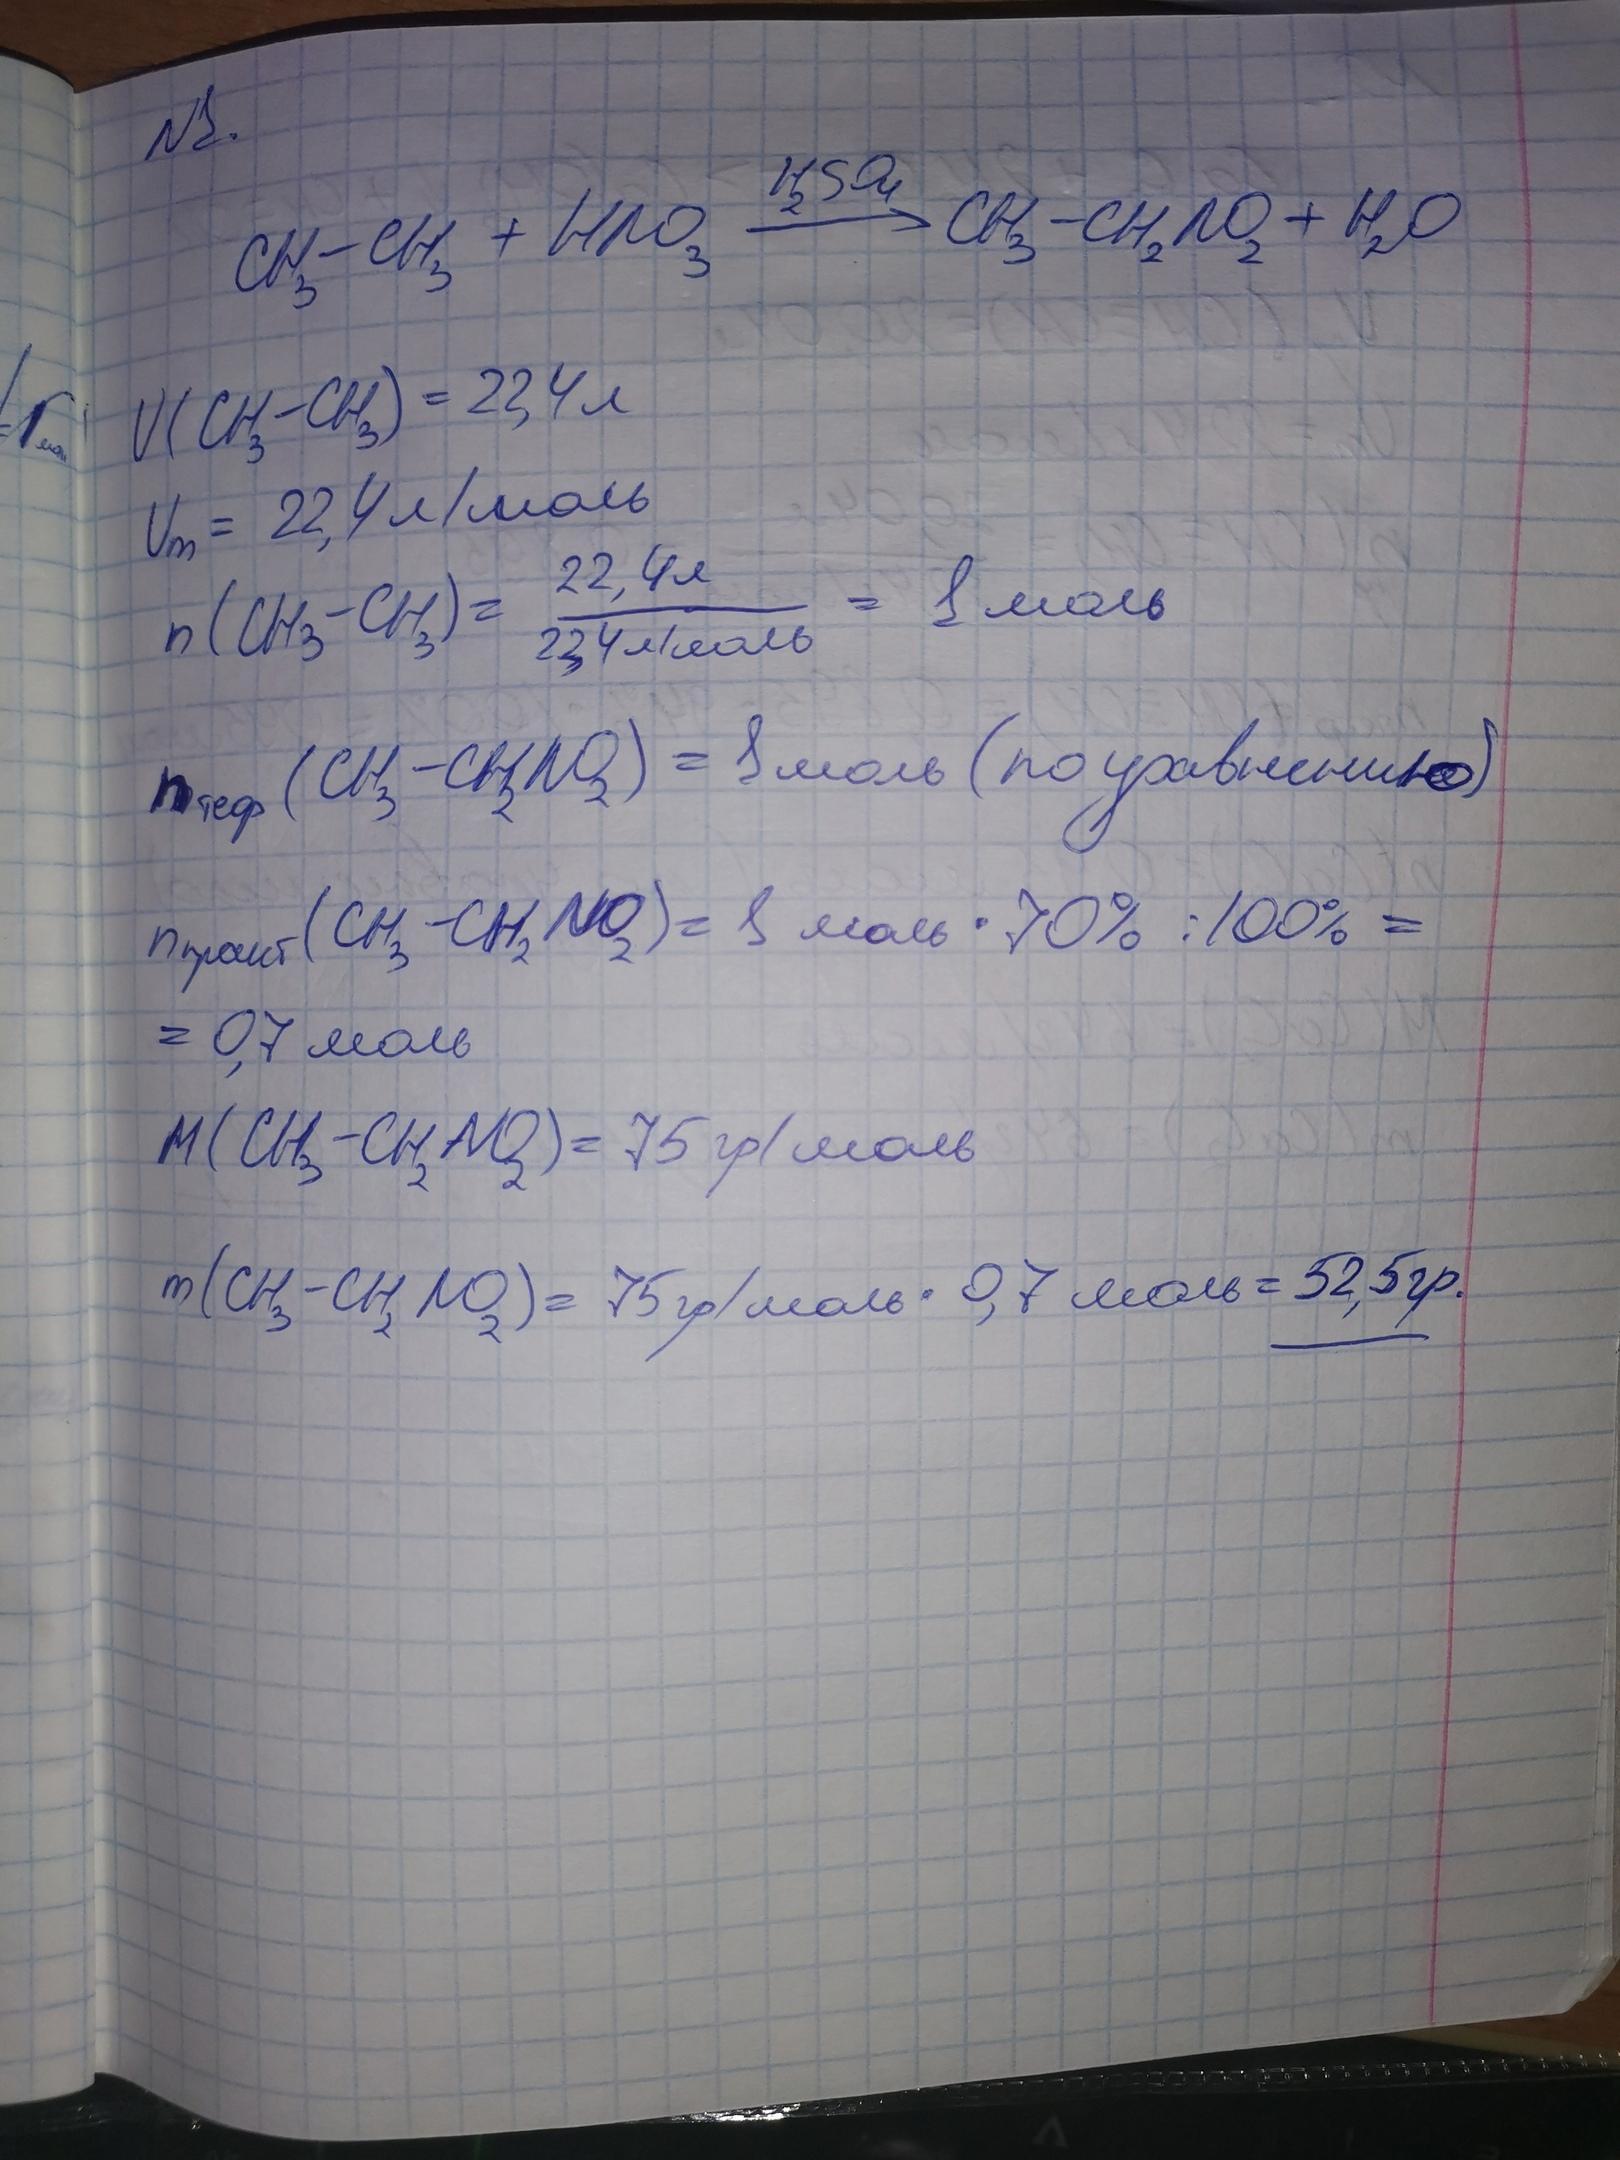 №1.
CH₃-CH₃ + HNO₃ H₂SO₄→ CH₃-CH₂NO₂ + H₂O
V(CH₃-CH₃) = 22,4л
Vm = 22,4л/моль
n(CH₃-CH₃) = 22,4л / 22,4л/моль = 1 моль
nтеор(CH₃-CH₂NO₂) = 1 моль (по уравнению)
nпракт(CH₃-CH₂NO₂) = 1 моль · 70% : 100% =
= 0,7 моль
M(CH₃-CH₂NO₂) = 75 гр/моль
m(CH₃-CH₂NO₂) = 75гр/моль · 0,7 моль = 52,5гр.